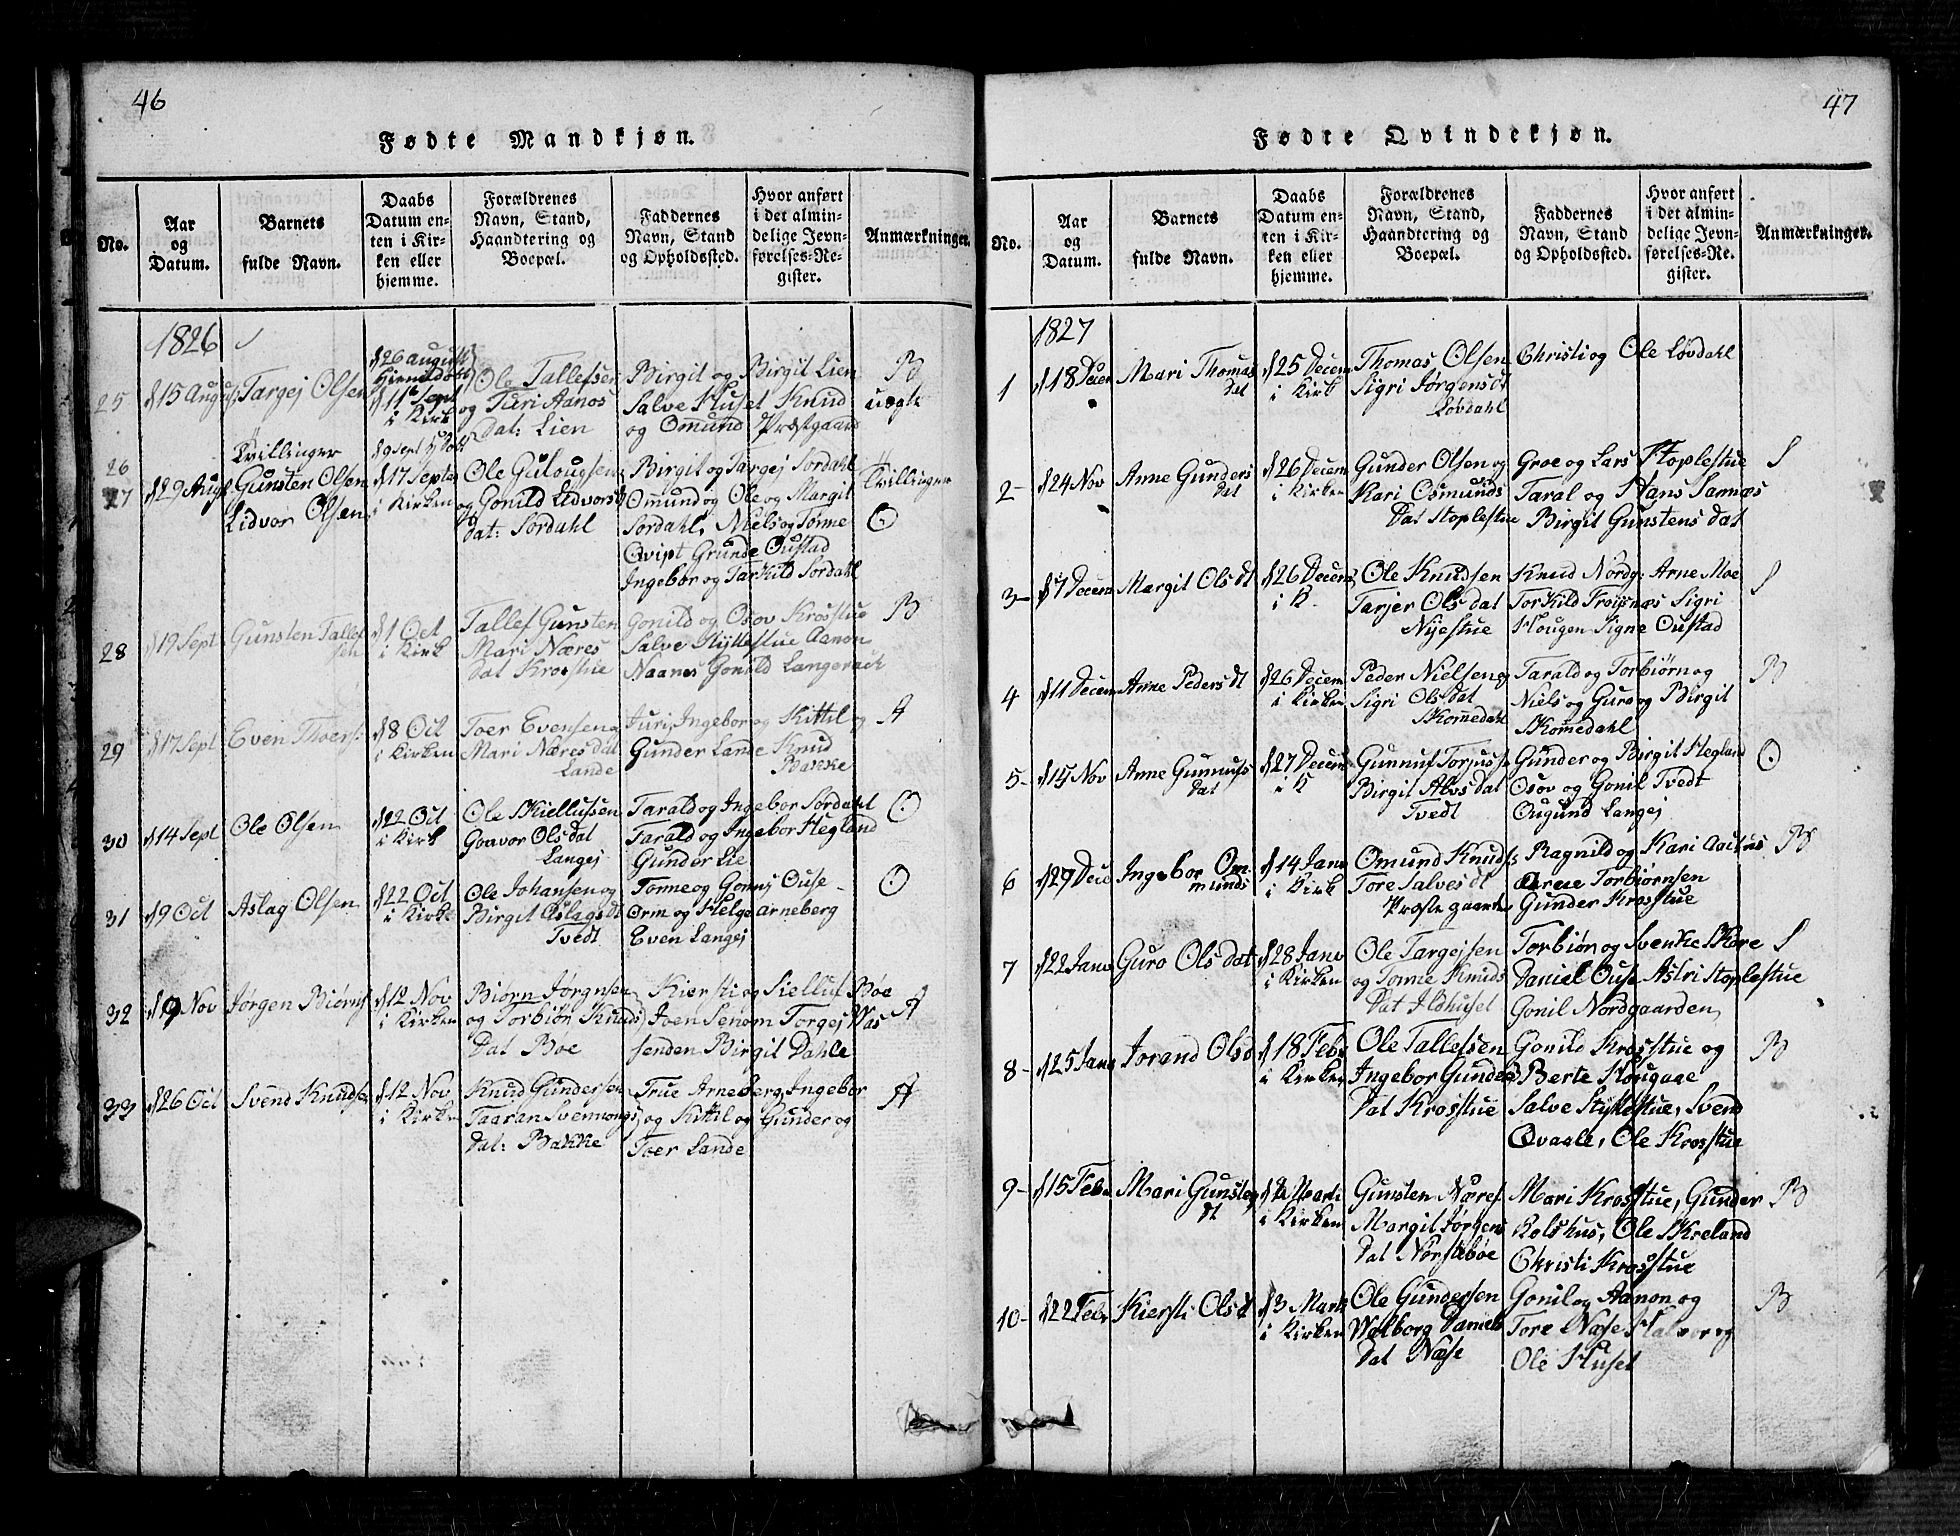 46
Fødte Mandkjøn.
No.
Aar
og
Datum.
Barnets
fulde Navn.
Daabs
Datum en-
ten i Kir-
ken eller
hjemme.
Forældrenes
Navn, Stand,
Haandtering og
Boepæl.
Faddernes
Navn, Stand
og Opholdssted.
Hvor anført
i det almin-
delige Jevn-
førelses-Re-
gister.
Anmærkninger.
1826
25
d 15 August
Targej Olsen
d 26 August
Hiemedøbt
d 11te Sept
i Kirk
Ole Tallefsen
og Turi Aanos
Dat: Lien
Birgit og Birgit Lien
Salve Huset Knud
og Omund Præstgaard
B
uægte
26
27
d 29 Augs
Tvillinger
Gunsten Olsen
Lidvor Olsen
d 9 Sept H Døbt
d 17 Septe
i Kirken
Ole Gulougsen
og Gonild Lidvors
Dat: Sordahl
Birgit og Targej Sordahl
Omund og Ole og Margit
Sordahl, Niels og Tønne
Qvipt Grunde Oustad
Ingebor og Tarkild Sordahl
Tvillinger
O
28
d 19 Sept
Gunsten Tallef
sen
d 1 Oct
i Kirk
Tallef Gunsten
Mari Næres
Dat Krosstue
Gonild og Osov Krosstue
Salve Stykkestue Aanon
Naanes Gonild Langerack
B
29
d 17 Sept
Even Thoers:
d 8 Oct
i Kirken
Toer Evensen og
Mari Næres dat
Lande
Juri, Ingebor og Kittil og
Gunder Lande Knud
Bakke
A
30
d 14 Sept
Ole Olsen
d 22 Oct
i Kirk
Ole Skiellufsen
Goavor Ols dat
Langej
Tarald og Ingebor Sordahl
Tarald og Ingebor Hegland
Gunder Lie
O
31
d 9 Oct
Aslag Olsen
d 22 Oct
i Kirk
Ole Johansen og
Birgit Aslags dt
Tvedt
Tonne og Gonnj Ouse
Orm og Helge arneberg
Even Langej
O
32
d 9 Nov
Jørgen Biørns
d 12 Nov
i Kirken
Biørn Jørgnsen
og Torbiør Knuds
Dat Boe
Kiersti og Sielluf Bøe
Joen Senom Torgej Was
senden Birgit Dahle
A
33
d 26 Oct
Svend Knudsen
d 12 Nov
i Kirken
Knud Gundersen
Taaran Svennongs
Dat: Bakke
True Arneberg, Ingebor
og Kittil og Gunder og
Toer Lande
A
47
Fødte Qvindekjøn.
No.
Aar
og
Datum.
Barnets
fulde Navn.
Daabs
Datum en-
ten i Kir-
ken eller
hjemme.
Forældrenes
Navn, Stand,
Haandtering og
Boepæl.
Faddernes
Navn, Stand
og Opholdssted.
Hvor anført
i det almin-
delige Jevn-
førelses-Re-
gister.
Anmærkninger.
1827
1
d 18 Decem
Mari Thomas
dat
d 25 Decem
i Kirk
Thomas Olsen
Sigri Jørgens dt
Løvdahl
Christi og Ole Løvdahl
2
d 24 Nov
Anne Gunders
dat
d 26 Decem
i Kirken
Gunder Olsen og
Kari Osmunds
Dat Stoplestue
Groe og Lars Stoplestue
Taral og Hans Samnæs
Birgit Gunstens dat
S
3
d 7 Decem
Margit Ols dt
d 26 Decem
i K.
Ole Knudsen
Tarjer Ols dat
Nyestue
Knud Nordg: Arne Moe
Torkild Froisnæs Sigri
Hougen Signe Oustad
S
4
d 11 Decem
Anne Peders dt
d 26 Decem
i Kirken
Peder Nielsen og
Sigri Ols dat
Skomedahl
Tarald og Torbiørn og
Niels og Guro og Birgit
Skomedahl
B
5
d 15 Nov
Anne Gunnufs
dat
d 27 Decem
i K
Gunnuf Torjuss
Birgit Alvs dat
Tvedt
Gunder og Birgit Hegland
Osov og Gonil Tvedt
Ougund Langej
O
6
d 29 Dece
Ingebor Om
munds
d 14 Janv
i Kirk
Omund Knuds:
Tore Salves dt
Præstegaarden
Ragnild og Kari
Torbiørnsen
Gunder Krosstue
B
7
d 22 Janv
Guro Ols dat
d 28 Janv
i Kirken
Ole Targejsen
og Tonne Knuds
Dat Ildhuset
Torbiør og Svenke Skore
Daniel Ouse Astri Stoplestue
Gonil Nordgaarden
S
8
d 25 Janv
Jorand Ols d
d 18 Feb
i Kirken
Ole Tallefsen
Ingebor Gunders
Dat Krosstue
Gonild Krosstue og
Berte Hougaae
Salve Stykestue, Svend
Qvaale, Ole Krosstue
B
9
d 15 Feb
Mari Gunstens
dt
Marti
i Kirken
Gunsten Næres
Margit Jørgens
Dat Norstebøe
Mari Krosstue, Gunder
Rolshus, Ole Skreland
Christi Krosstue
B
10
d 22 Feb
Kiersti Ols d
d 3 Mart
i Kirken
Ole Gundersen
Walborg Daniels
Dat Næse
Gonil og Aanon og
Tore Næse Halvor og
Ole Huset
B